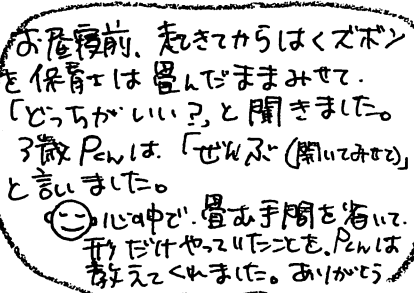 お昼寝前、起きてからはくズボン
を保育士は畳んだままみせて.
「どっちがいい?」と聞きました。
3歳Pくんは.「ぜんぶ(開いてみせて)」
と言いました。
心の中で.畳む手間を省いて.
形だけやっていたことを、Pくんは
教えてくれました。ありがとう